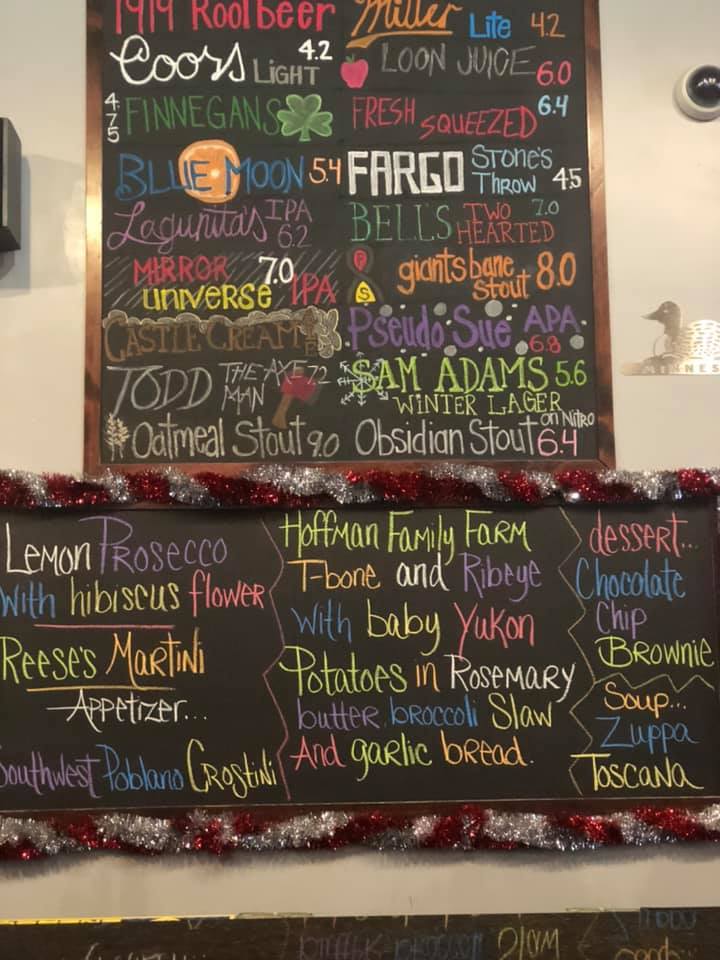 1919 Rootbeer
Miller Lite 4.2
Coors Light 4.2
Loon Juice 6.0
4.75 Finnegans
Fresh Squeezed 6.4
Blue Moon 5.4
Fargo Stone's Throw 4.5
Lagunita's IPA 6.2
Bell's Two Hearted 7.0
Mirror Universe 7.0 IPA
P
S
giantsbane stout 8.0
Castle Cream
Pseudo Sue APA 6.8
Todd The Axe Man 7.2
Sam Adams 5.6
Winter Lager
Oatmeal Stout 9.0
Obsidian Stout on Nitro 6.4
Lemon Prosecco
with hibiscus flower
Reese's Martini
Appetizer...
Southwest Poblano Crostini
Hoffman Family Farm
T-bone and Ribeye
with baby Yukon
Potatoes in Rosemary
butter, broccoli Slaw
And garlic bread.
dessert...
Chocolate
Chip
Brownie
Soup...
Zuppa
Toscana